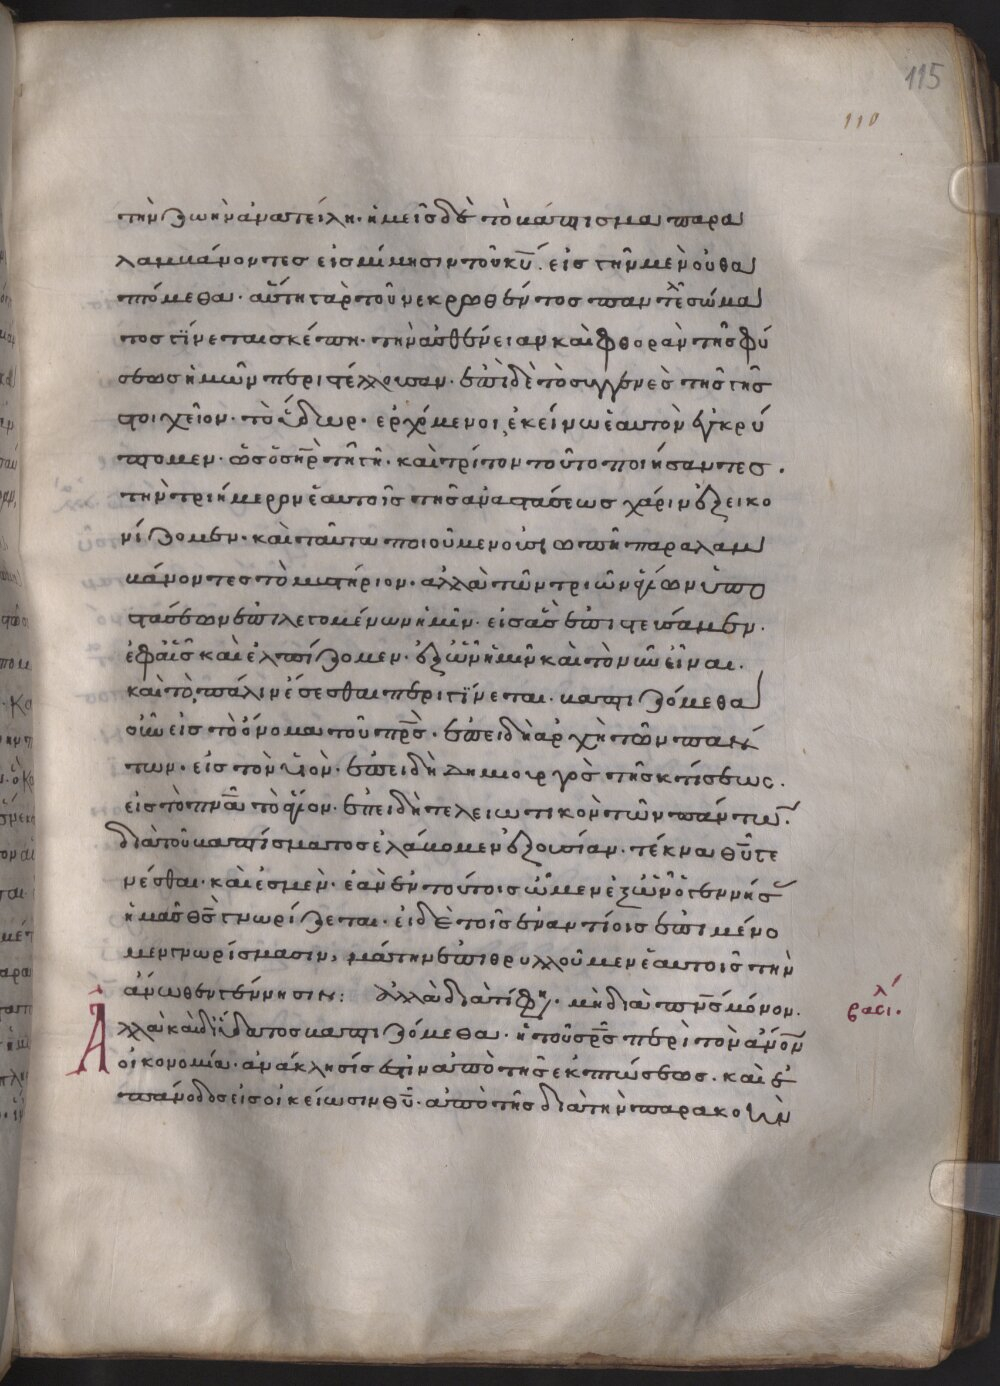 115
110
τὴν ζωὴν ἀνατείλη· ἡμεῖς δὲ τὸ βάπτισμα παρα
λαμβάνοντες εἰς μίμησιν τοῦ κυ̅. εἰς γῆν μὲν οὐ θα
πτόμεθα· αὕτη γὰρ τοῦ νεκρωθέντος παντελῶς σώμα
τος γίνεται σκέπη· τὴν ἀσθένειαν καὶ φθορὰν τῆς φύ
σεως ἡμῶν περιστέλλουσα· ἐπὶ δὲ τὸ συγγενὲς τῆς γῆς
στοιχεῖον· τὸ ὕδωρ· ἐρχόμενοι ἐκείνω ἑαυτὸν ἐγκρύ
πτομεν· ὡς ὁ σηρ̅ τῆ γῆ· καὶ τρίτον τοῦτο ποιήσαντες.
τὴν τριήμερον ἑαυτοῖς τῆς ἀναστάσεως χάριν ἐξεικο
νίζομεν· καὶ ταῦτα ποιοῦμεν οὐ σιωπῆ παραλαμ
βάνοντες τὸ μυστήριον· ἀλλὰ τῶν τριῶν ἁγίων ὑπο
στάσεων ἐπιλεγομένων ἡμῖν· εἰς ἃς ἐπιστεύσαμεν·
ἐφ αἷς καὶ ἐλπίζομεν· ἐξ ὧν ἡμῖν καὶ τὸ νῦν εἶναι.
καὶ τὸ πάλιν ἔσεσθαι περιγίνεται· βαπτιζόμεθα
οὖν εἰς τὸ ὄνομα τοῦ πρ̅ς· ἐπειδὴ ἀρχὴ τῶν παν
των· εἰς τὸν υἱὸν· ἐπειδὴ δημιουργὸς τῆς κτίσεως.
εἰς τὸ πνα̅ τὸ ἅγιον· ἐπειδὴ τελειωτικὸν τῶν πάντων.
διὰ τοῦ βαπτίσματος ἐλάβομεν ἐξουσίαν· τέκνα θυ̅ γε
νέσθαι· καὶ ἐσμὲν· ἐὰν ἐν τούτοις ὦμεν ἐξ ὧν ὁ γεννήσ
ἡμᾶς θς̅ γνωρίζεται· εἰ δὲ τοῖς ἐναντίοις ἐπιμένο
μεν γνωρίσμασιν, μάτην ἐπιθρυλλοῦμεν ἑαυτοῖς τὴν
ἄνωθεν γέννησιν: Ἀλλὰ διατί φη· μὴ διὰ πνς̅ μόνον.
βασιλ.
Ἀλλὰ καὶ δι ὕδατος βαπτιζόμεθα· ἡ τοῦ σρ̅ς περὶ τὸν ἄνον̅
οἰκονομία· ἀνάκλησίς ἐστιν ἀπὸ τῆς ἐκπτώσεως· καὶ ἐ
πάνοδος εἰς οἰκείωσιν θυ̅· ἀπὸ τῆς διὰ τὴν παρακοὴν